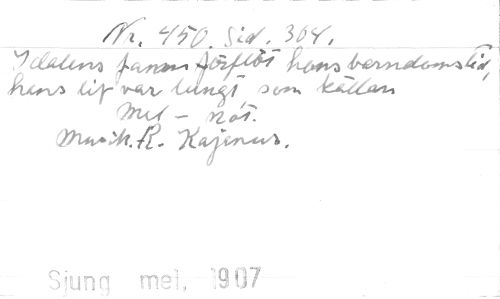 Nr. 450. Sid. 304.
I dalens famn förflöt hans barndoms tid,
hans lif var lugnt som källan
Mel - not.
Musik. R. Kajanus.
Sjung mel, 1907